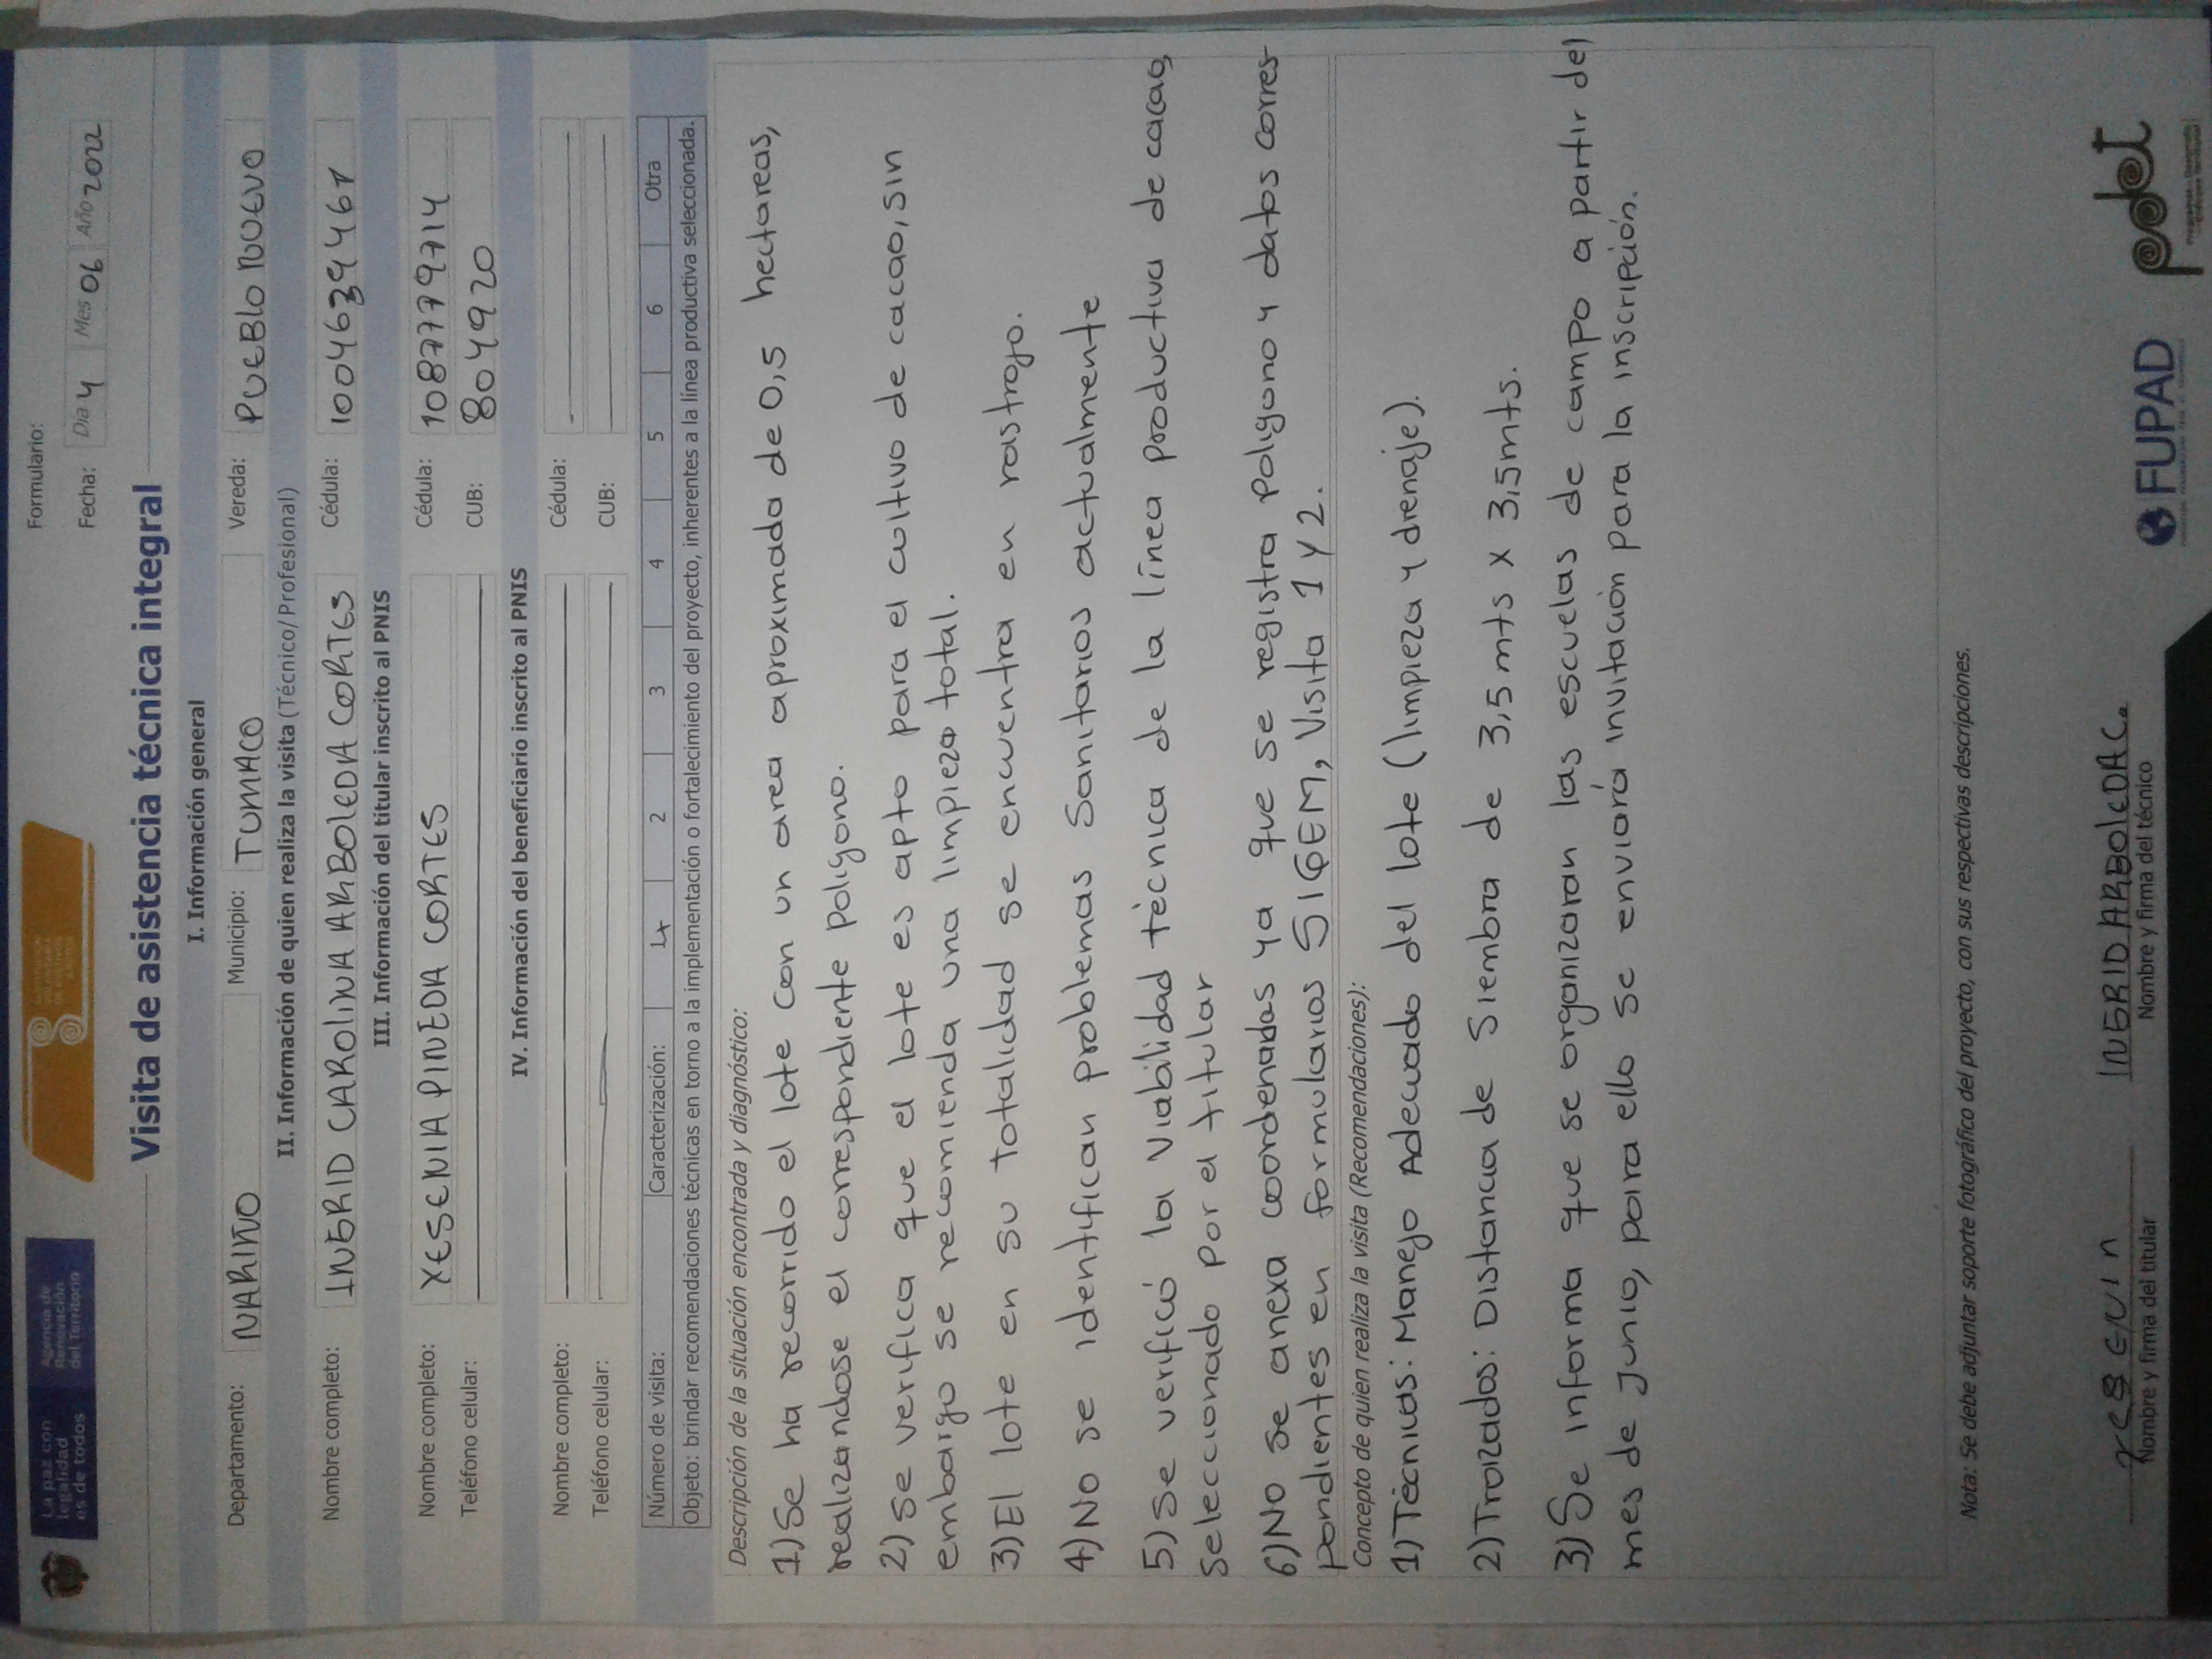 La paz con
legalidad
es de todos
Agencia de
Renovación
del Territorio
Formulario:
Fecha: Día 4 Mes 06 Año 2022
Visita de asistencia técnica integral
I. Información general
Departamento: NARIÑO Municipio: TUMACO Vereda: PUEBLO NUEVO
II. Información de quien realiza la visita (Técnico/Profesional)
Nombre completo: INGRID CAROLINA ARBOLEDA CORTES Cédula: 1004639461
III. Información del titular inscrito al PNIS
Nombre completo: YESENIA PINEDA CORTES Cédula: 1087779714
Teléfono celular: CUB: 804920
IV. Información del beneficiario inscrito al PNIS
Nombre completo: Cédula:
Teléfono celular: CUB:
Número de visita: Caracterización: 2 3 4 5 6 Otra
Objeto: brindar recomendaciones técnicas en torno a la implementación o fortalecimiento del proyecto, inherentes a la línea productiva seleccionada.
Descripción de la situación encontrada y diagnóstico:
1) Se ha recorrido el lote con un area aproximada de 0,5 hectareas,
realizandose el correspondiente poligono.
2) Se verifica que el lote es apto para el cultivo de cacao, sin
embargo se recomienda una limpieza total.
3) El lote en su totalidad se encuentra en rastrojo.
4) No se identifican problemas Sanitarios actualmente
5) Se verificó la Viabilidad tècnica de la línea productiva de cacao,
Seleccionado por el titular
6) No se anexa coordenadas ya que se registra poligono y datos corres-
pondientes en formularios SIGEM, Visita 1 y 2.
Concepto de quien realiza la visita (Recomendaciones):
1) Tècnicos: Manejo Adecuado del lote (limpieza y drenaje).
2) Trazados: Distancia de Siembra de 3,5 mts x 3,5mts.
3) Se informa que se organizaran las escuelas de campo a partir del
mes de Junio, para ello se enviará invitación para la inscripción.
Nota: Se debe adjuntar soporte fotográfico del proyecto, con sus respectivas descripciones.
INGRID ARBOLEDA C.
Nombre y firma del titular Nombre y firma del técnico
FUPAD
pdet